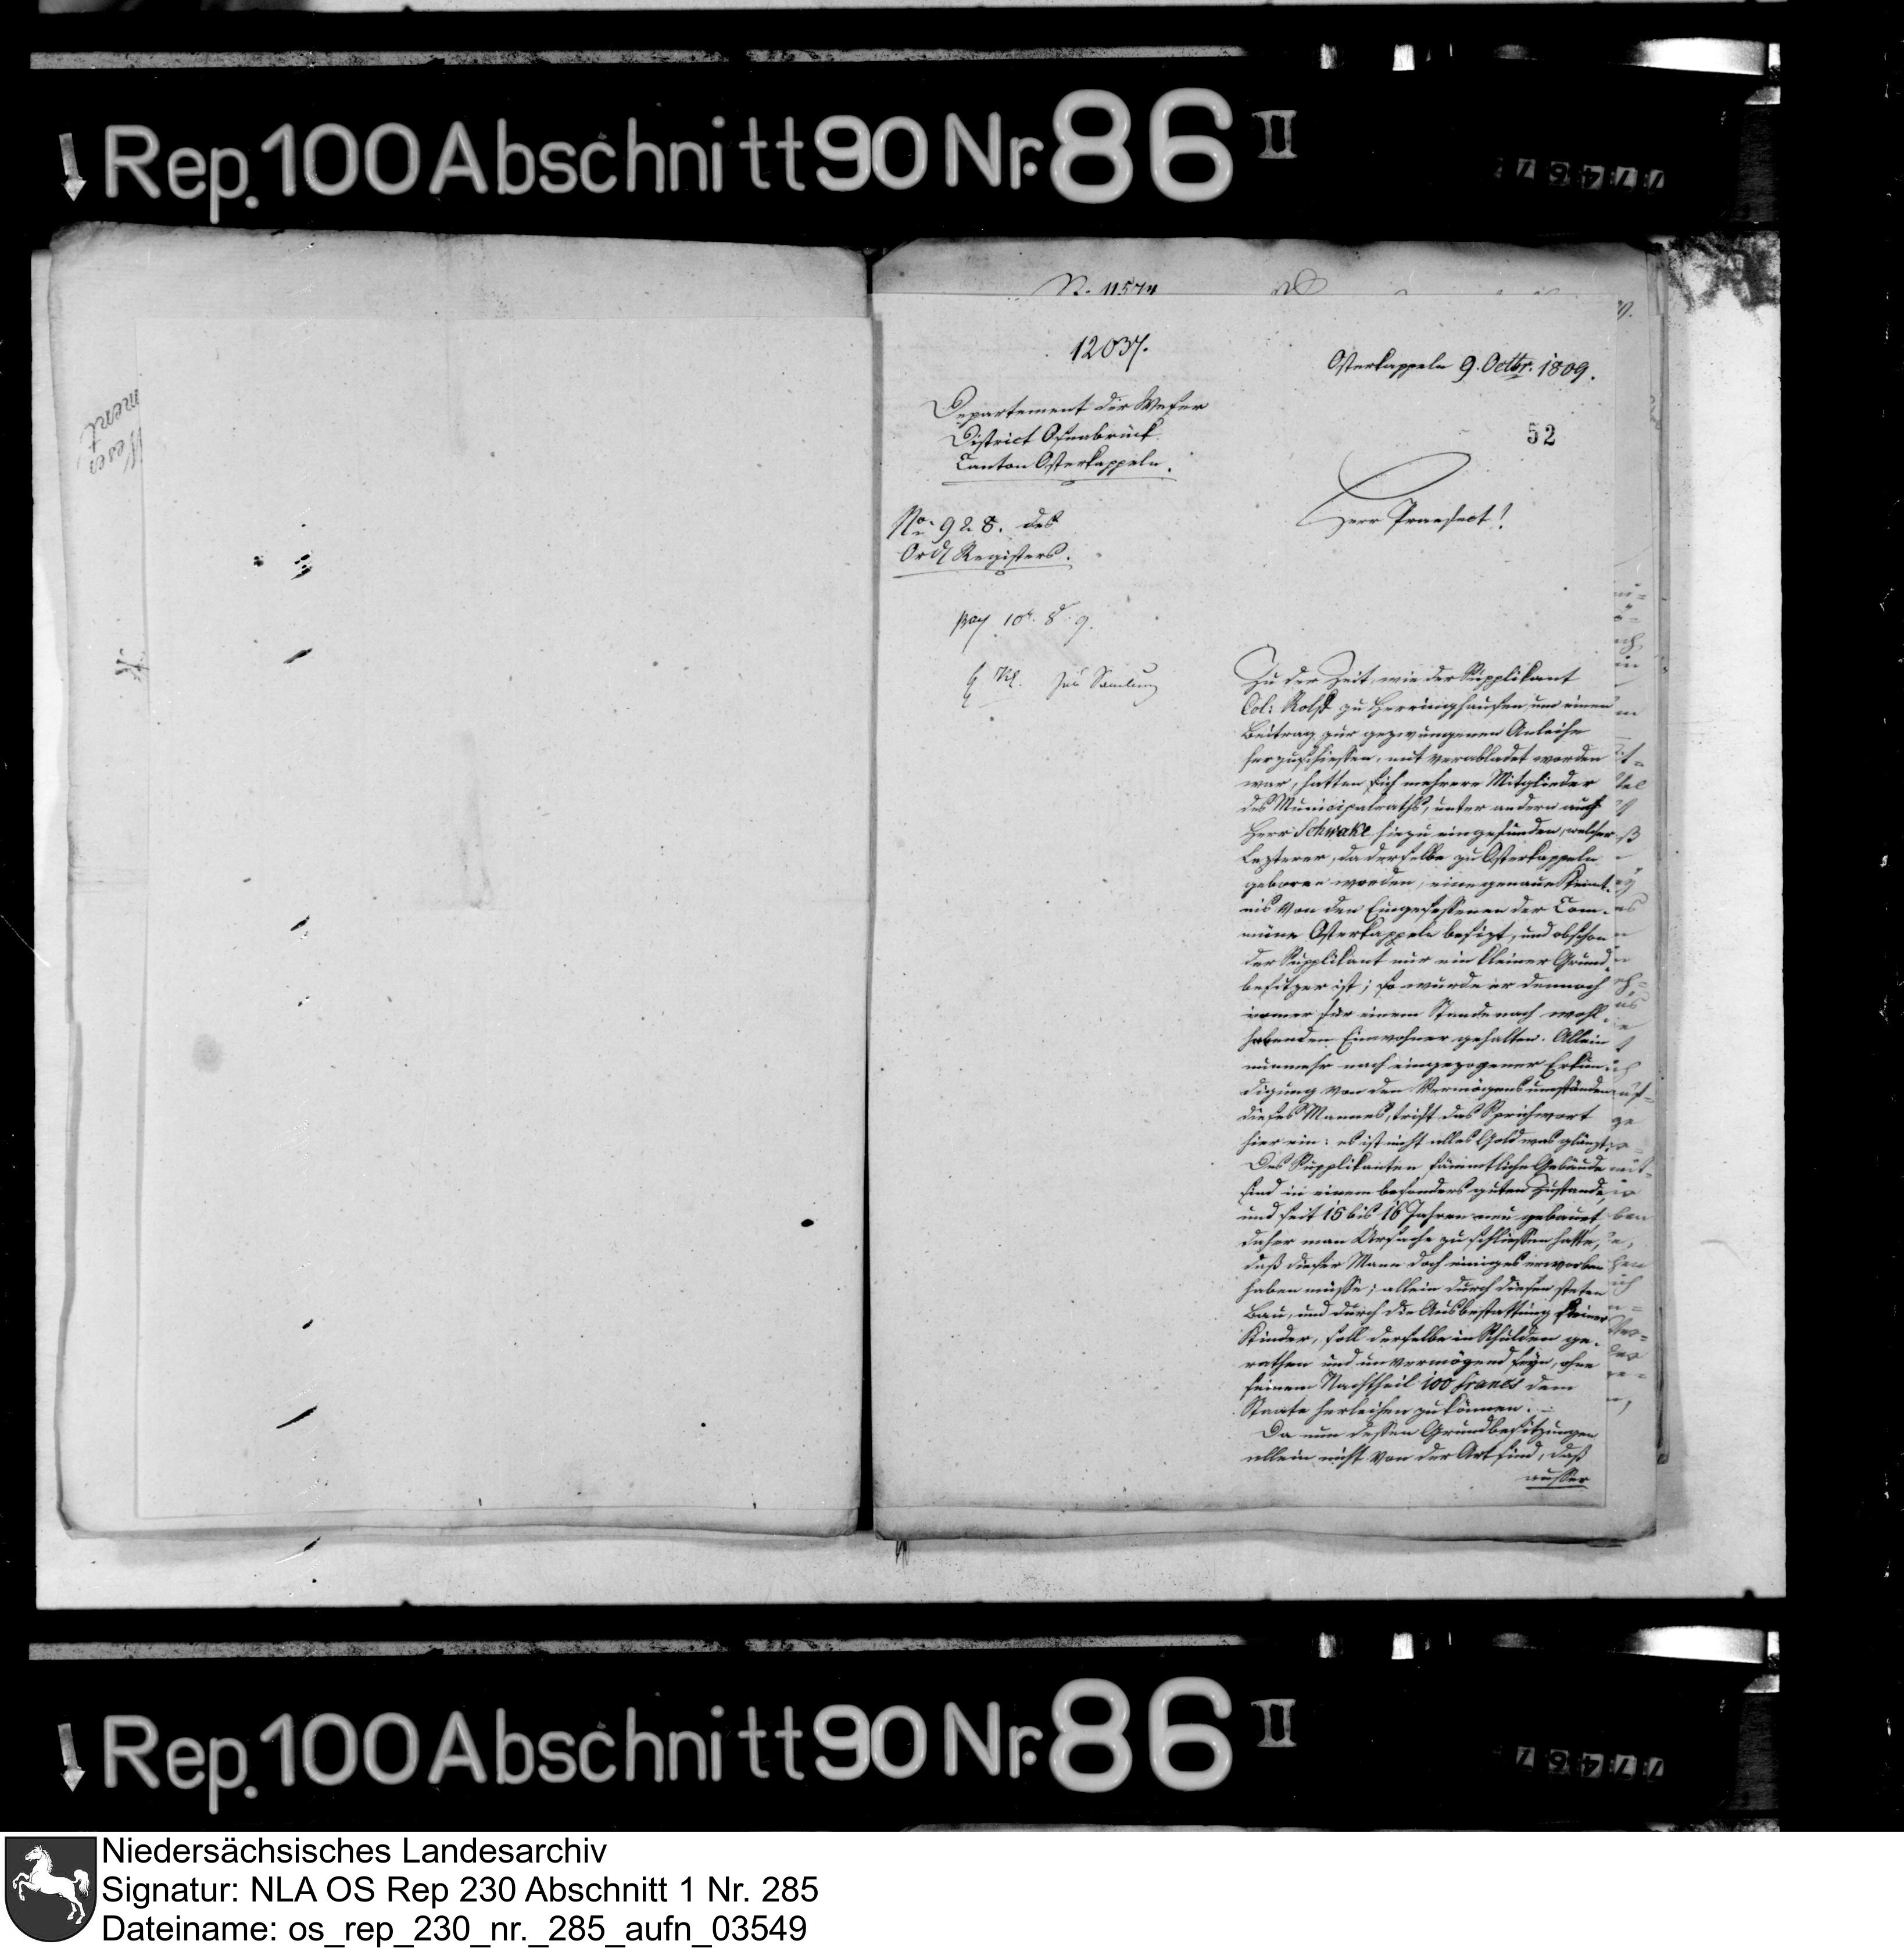 Rep. 100 Abschnitt 90 Nr. 86 II
N. 11574
12037.
Osterkappeln 9. Octbr. 1809.
52
Departement der Weser
District Osnabrück
Canton Osterkappeln.
Herr Praefect!
No. 928. des
Ord. Registers.
Zur Samlung
Zu der Zeit, wie der Supplikant
Col: Rolf zu Herringhausen um einen
Beitrag zur gezwungenen Anleihe
herzuschiessen, mit verabladet worden
war, hatten sich mehrere Mitglieder
des Municipalraths, unter andern auch
Herr Schwake hiezu eingefunden, welcher
Lezterer, da derselbe zu Osterkappeln
geboren worden, eine genaue Kennt-
nis von den Eingesessenen der Com-
müne Osterkappeln besizt, und obschon
der Supplikant nur ein kleiner Grund-
besitzer ist; so wurde er dennoch
immer für einem Stande nach wohl-
habenden Einwohner gehalten. Allein
nunmehr nach eingezogener Erkün-
digung von den Vermögensumständen
dieses Mannes, trift das Sprichwort
hier ein: es ist nicht alles Gold was glänzt.
Des Supplikanten sämmtliche Gebäude
sind in einem besonders guten Zustande,
und seit 15 bis 16 Jahren neu gebauet
daher man Ursache zu schliessen hatte,
daß dieser Mann doch einiges erworben
haben müsse; allein durch diesen steten
Bau, und durch die Ausbestattung seiner
Kinder, soll derselbe in Schulden ge-
rathen und unvermögend seyn, ohne
seinem Nachtheil 100 francs dem
Staate herleihen zu können.
Da nun dessen Grundbesitzungen
allein nicht von der Art sind, daß
ausser
Rep. 100 Abschnitt 90 Nr. 86 II
Niedersächsisches Landesarchiv
Signatur: NLA OS Rep 230 Abschnitt 1 Nr. 285
Dateiname: os_rep_230_nr._285_aufn_03549